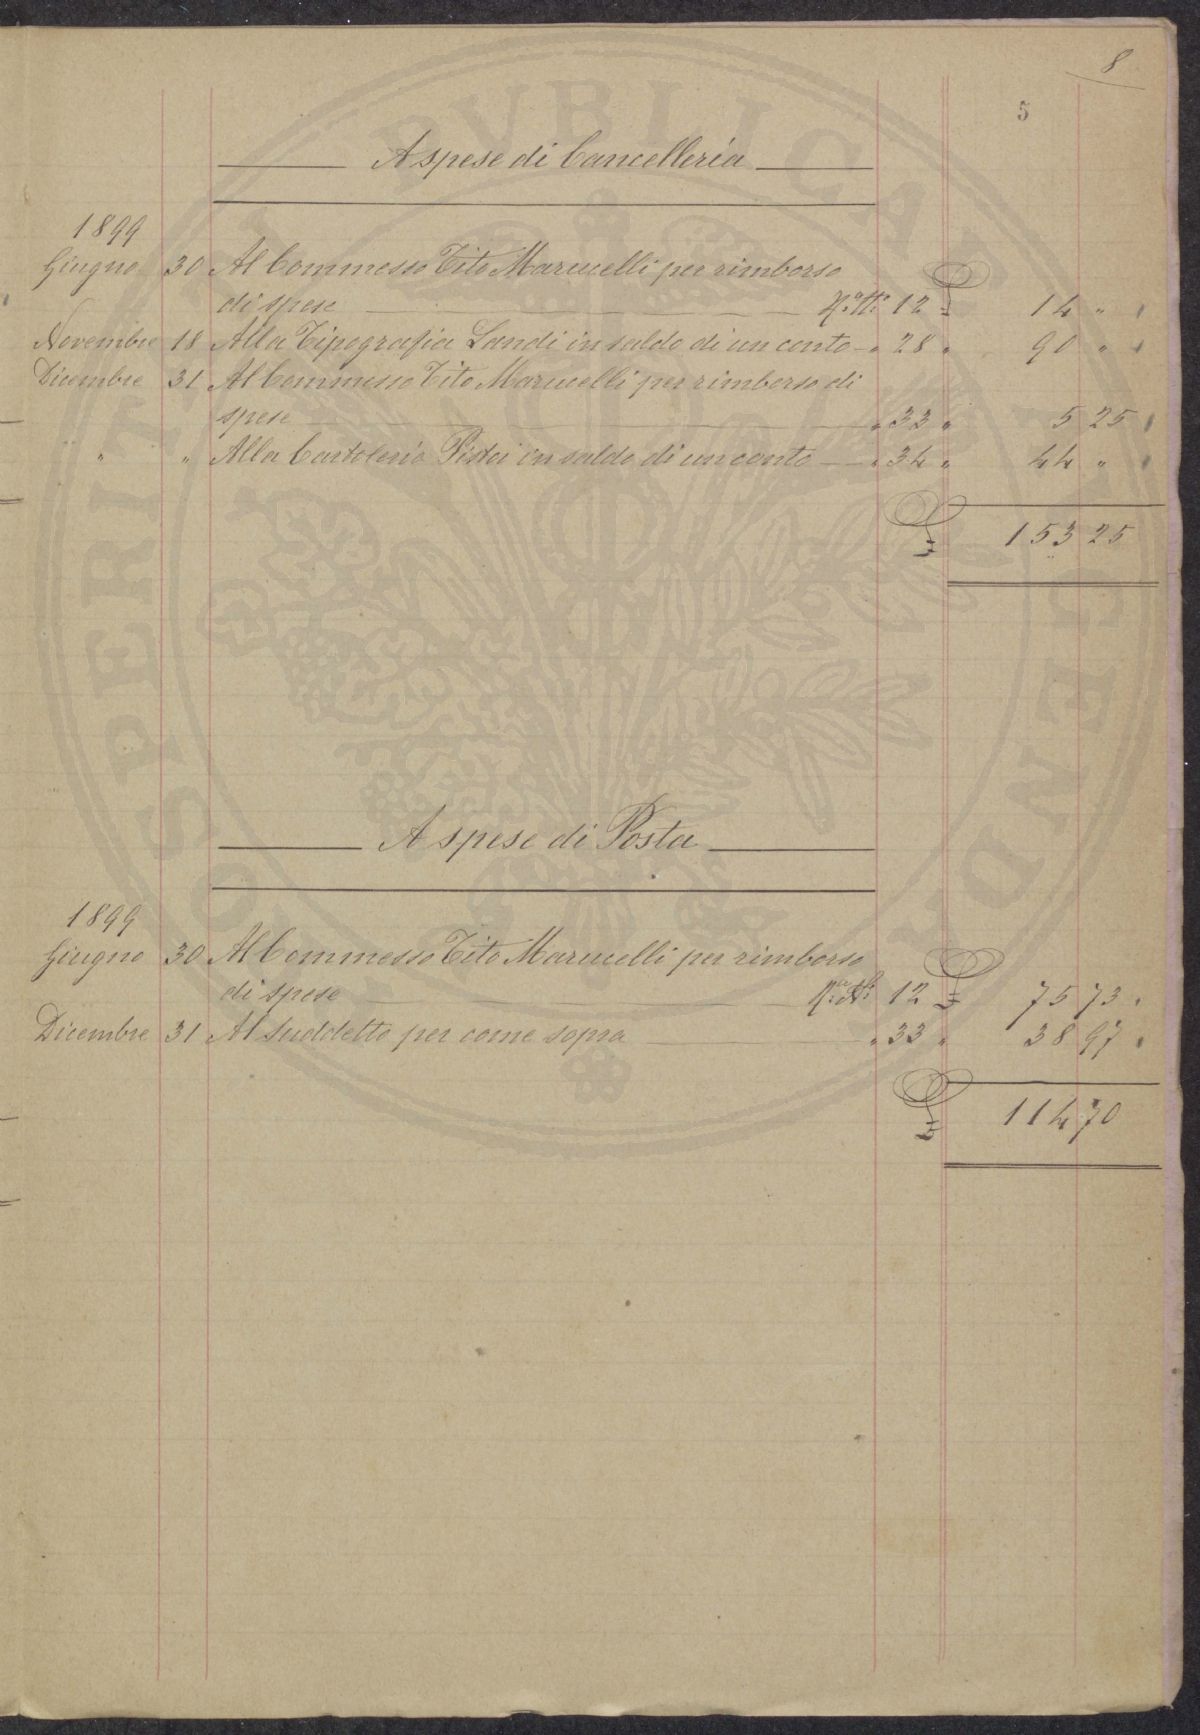 8
5
A spese di Cancelleria
1899
Giugno 30 Al Commesso Tito Marucelli per rimborso
di spese N.° 12 £ 14 "
Novembre 18 Alla Tipografia Landi in saldo di un conto " 28 " 90 "
Dicembre 31 Al Commesso Tito Marucelli per rimborso di
spese " 33 " 5 25
" " Alla Cartoleria Pistoi in saldo di un conto " 34 " 44 "
£ 153 25
A spese di Posta
1899
Giugno 30 Al Commesso Tito Marucelli per rimborso
di spese 12 £ 75 73
Dicembre 31 Al Suddetto per come sopra " 33 " 38 97
£ 114 70